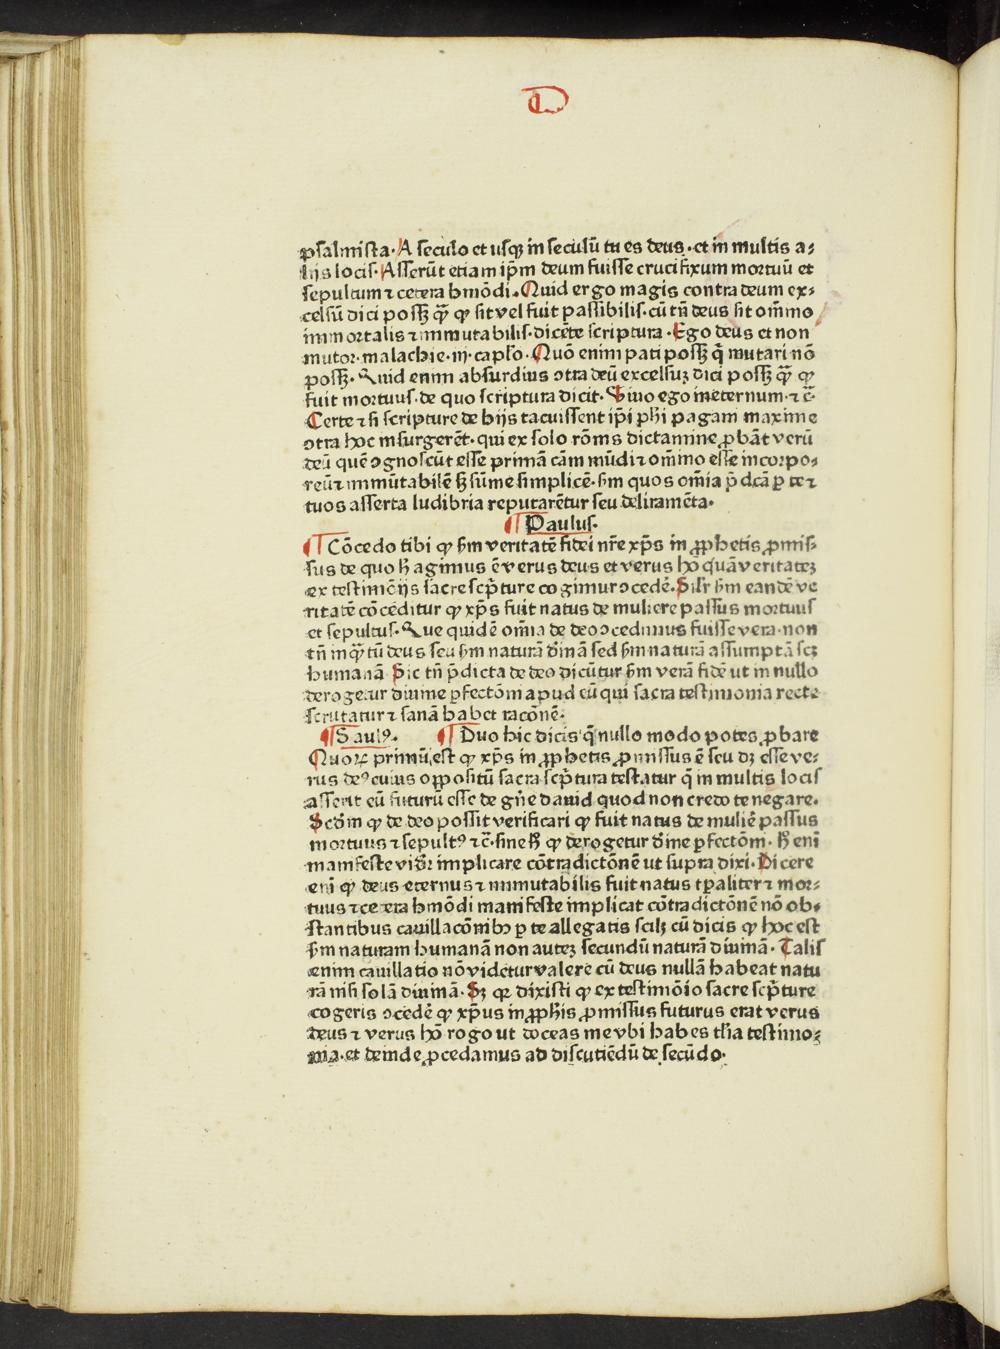 D
psalmista. A seculo et usq̨ in seculū tu es deus. et in multis a⸗
lijs locis. Asserūt etiam ip̄m deum fuisse crucifixum mortuū et
sepultum ⁊ cetera hmōdi. Quid ergo magis contra deum ex⸗
celsū dici possꝫ qᷓꝫ ꝙ sit vel fuit passibilis. cū tn̄ deus sit om̄ino
immortalis ⁊ immutabilis. dicēte scriptura. Ego deus et non
mutor. malachie. iij. capl̄o. Quō enim pati possꝫ q̄ mutari nō
possꝫ. Quid enim absurdius ꝯtra deū excelsuꝫ dici possꝫ qᷓꝫ ꝙ
fuit mortuus. de quo scriptura dicit. Viuo ego ineternum. ⁊ c̄.
Certe ⁊ si scripture de hijs tacuissent ip̄i ph̄i pagani maxime
ꝯtra hoc insurgerēt. qui ex solo rōnis dictamine ꝓbāt verū
deū quē ꝯgnoscūt esse primā cām mūdi ⁊ om̄ino esse incorpo⸗
reū ⁊ immūtabilē ⁊ sūme simplicē. ẜm quos om̄ia p̄dc̄a ꝑ te ⁊
tuos asserta ludibria reputarētur seu deliramēta.
¶ Paulus.
¶ Cōcedo tibi ꝙ ẜm veritatē fidei nr̄e xp̄s in ꝓphetis ꝓmis⸗
sus de quo h̄ agimus ē verus deus et verus hō quā veritateꝫ
ex testimōijs sacre scp̄ture cogimur ꝯcedē. Silr̄ ẜm eandē ve
ritatē cōceditur ꝙ xp̄s fuit natus de muliere passus mortuus
et sepultus. Que quidē om̄ia de deo ꝯcedimus fuisse vera. non
tn̄ inqᷓꝫtū deus seu ẜm naturā diuinā sed ẜm naturā assumptā scꝫ
humanā Sic tn̄ p̄dicta de deo dicūtur ẜm verā fidē ut in nullo
derogetur diuine ꝑfectōni apud eū qui sacra testimonia recte
scrutatur ⁊ sanā habet racōnē.
¶ Saulꝰ. ¶ Duo hic dicis q̄ nullo modo potes ꝓbare
Quoꝝ primū est ꝙ xp̄s in ꝓphetis ꝓmissus ē seu dꝫ esse ve⸗
rus deꝰ cuius oppositū sacra scp̄tura testatur q̄ in multis locis
asserit eū futurū esse de gn̄e dauid quod non credo te negare.
Secdm̄ ꝙ de deo possit verificari ꝙ fuit natus de muliē passus
mortuus ⁊ sepultꝰ ⁊ c̄. sine h̄ ꝙ derogetur diuine ꝑfectōni. H̄ eni
manifeste vidr̄ implicare cōtradictōnē ut supra dixi. Dicere
eni ꝙ deus eternus ⁊ immutabilis fuit natus tꝑaliter ⁊ mor⸗
tuus ⁊ cetera hmōdi manifeste implicat cōtradictōnē nō ob⸗
stantibus cauillacōnibꝫ ꝑ te allegatis scilꝫ cū dicis ꝙ hoc est
ẜm naturam humanā non auteꝫ secundū naturā diuinā. Talis
enim cauillatio nō videtur valere cū deus nullā habeat natu
rā nisi solā diuinā. Sꝫ qꝛ dixisti ꝙ ex testimōio sacre scp̄ture
cogeris ꝯcedē ꝙ xp̄us in ꝓph̄is ꝓmissus futurus erat verus
deus ⁊ verus hō rogo ut doceas me vbi habes tl̄ia testimo⸗
nia. et deinde ꝓcedamus ad discutiēdū de secūdo.